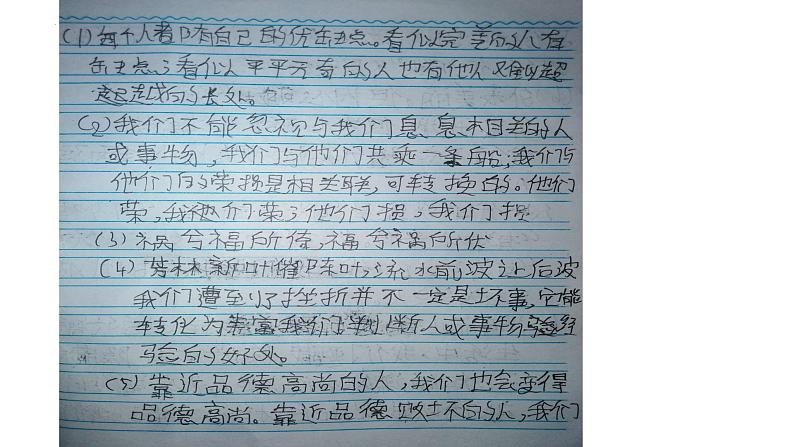 (1)每个人者阝有自己的优缶夬点。看似完美的人有
缶夬点;看似平平无奇的人也有他人难以超
越的长处。
(2)我们不能忽视与我们息息相关的人
或事物,我们与他们共乘一条船;我们与
他们的荣损是相关联,可转换的。他们
荣,我们荣;他们损,我们损
(3)祸兮福所倚,福兮祸所伏
(4)芳林新叶催陈叶,流水前波让后波
我们遭到了挫折并不一定是坏事,它能
转化为丰富我们判断人或事物经
验的好处。
(5)靠近品德高尚的人,我们也会变得
品德高尚。靠近品德败坏的人,我们